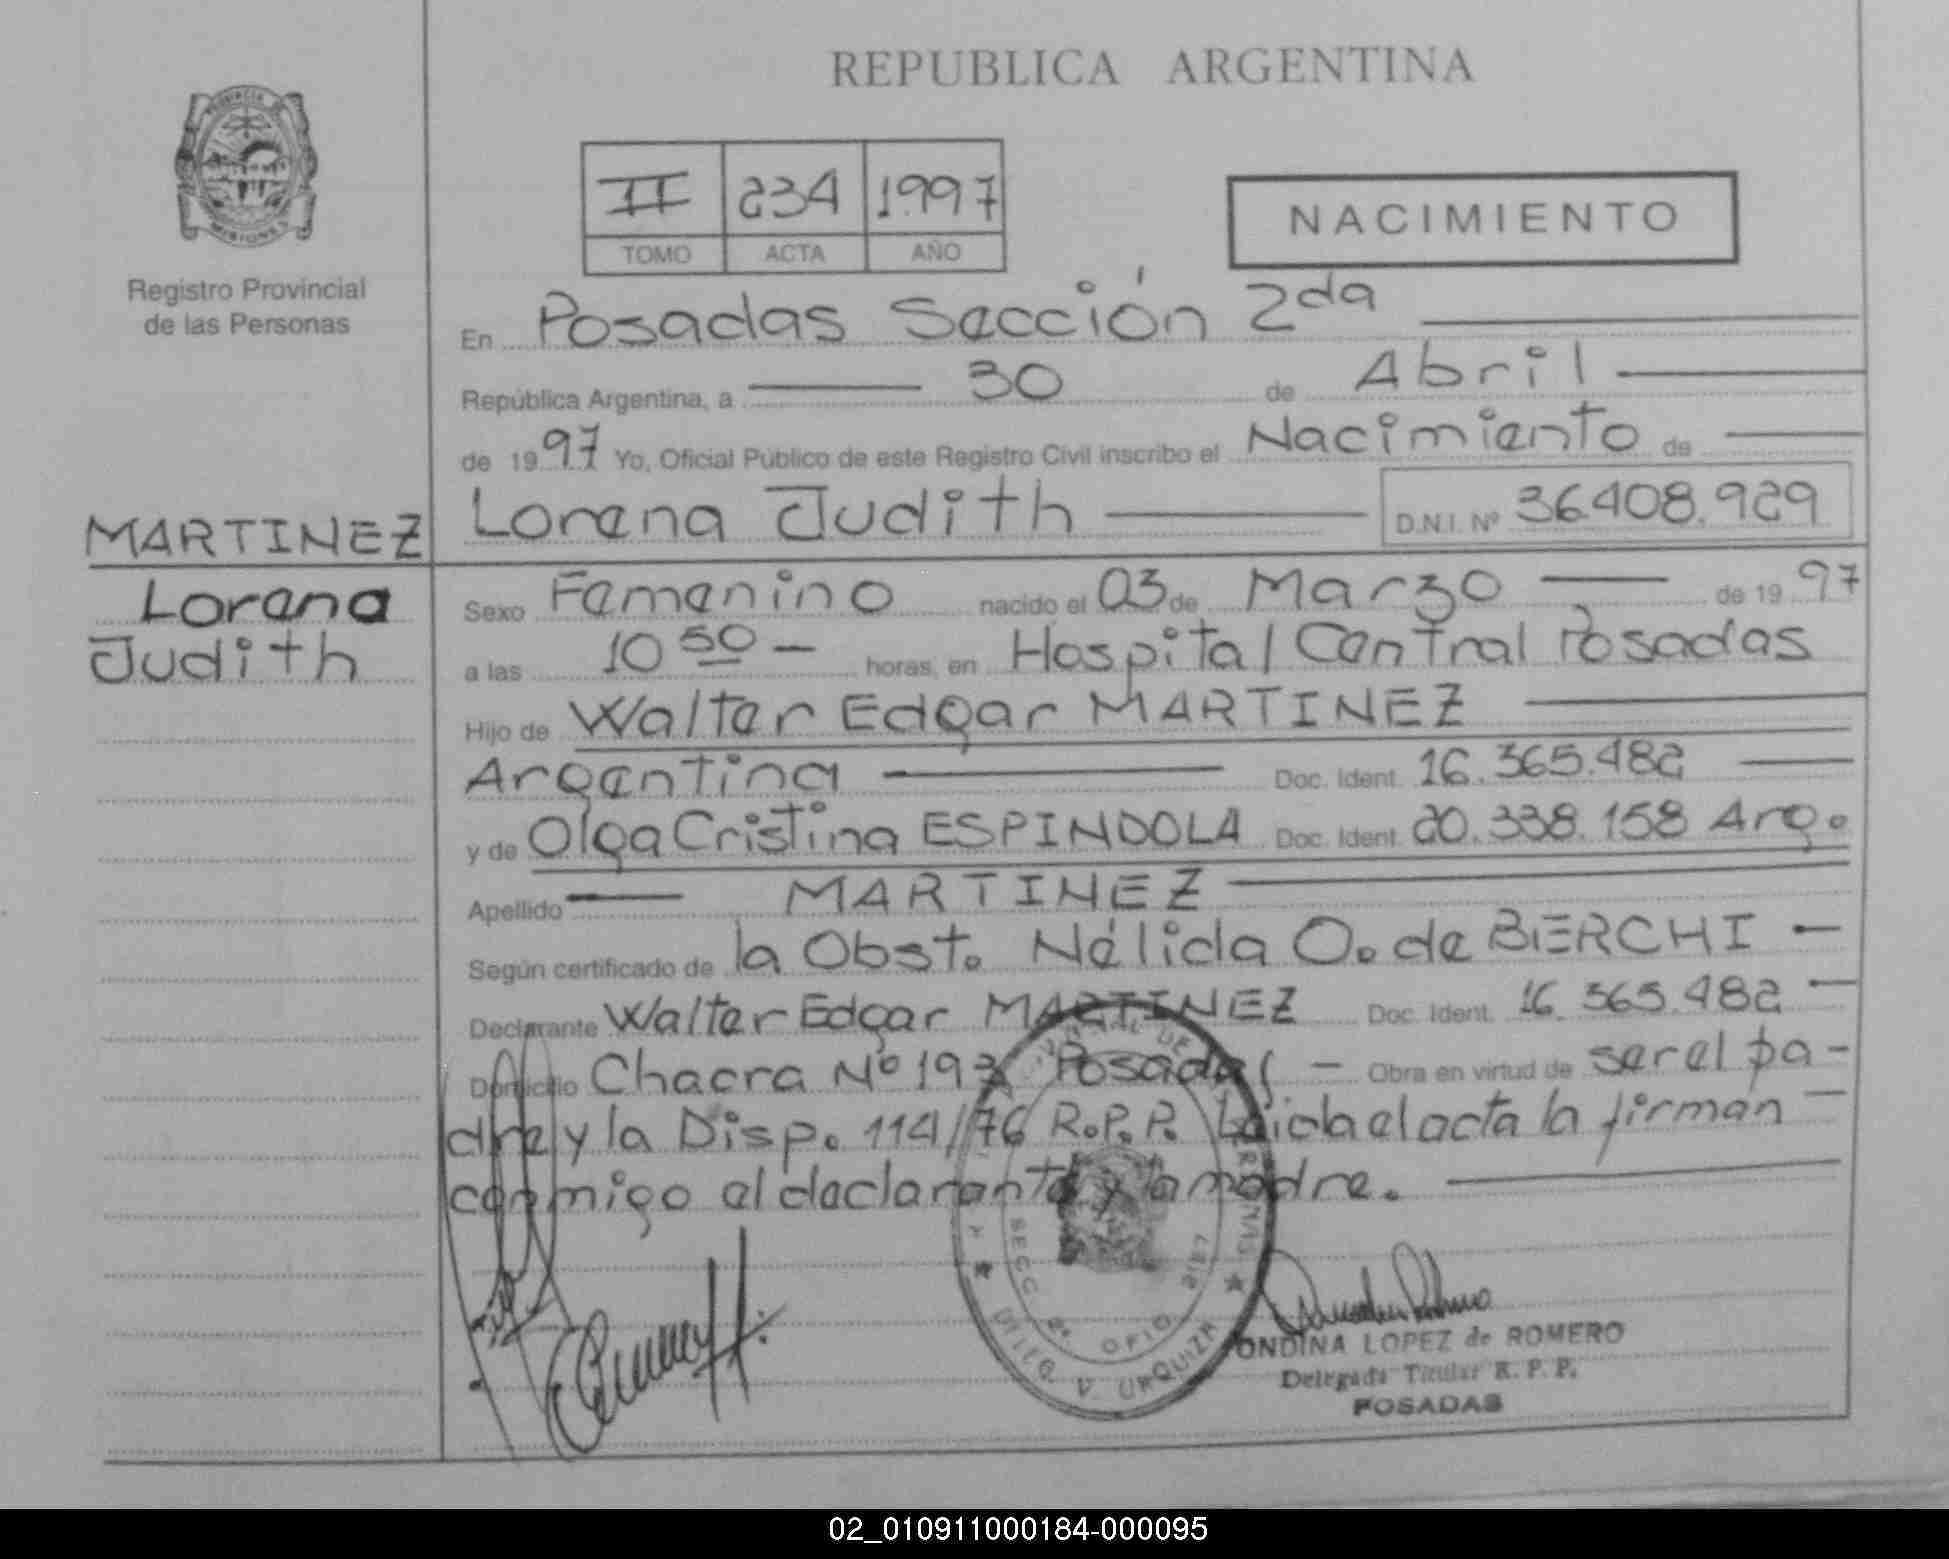 REPUBLICA ARGENTINA
PROVINCIA DE
MISIONES
Registro Provincial
de las Personas
II 234 1997
TOMO ACTA AÑO
NACIMIENTO
En Posadas Sección 2da
República Argentina, a 30 de Abril
de 1997 Yo, Oficial Público de este Registro Civil inscribo el Nacimiento de
Lorena Judith D.N.I. Nº 36408.929
MARTINEZ
Lorena
Judith
Sexo Femenino nacido el 03 de Marzo de 1997
a las 10 50 horas, en Hospital Central Posadas
Hijo de Walter Edgar MARTINEZ
Argentina Doc. Ident. 16.365.482
y de Olga Cristina ESPINDOLA Doc. Ident. 20.338.158 Arg.
Apellido MARTINEZ
Según certificado de la Obst. Nélida O. de BIERCHI
Declarante Walter Edgar MARTINEZ Doc. Ident. 16.365.482
Domicilio Chacra Nº 193 Posadas Obra en virtud de ser el pa-
dre y la Disp. 114/76 R.P.P. Leida el acta la firman
conmigo el declarante y la madre.
SECC 2ª OFIC
URQUIZA
ONDINA LOPEZ de ROMERO
Delegada Titular R. P. P.
POSADAS
02_010911000184-000095